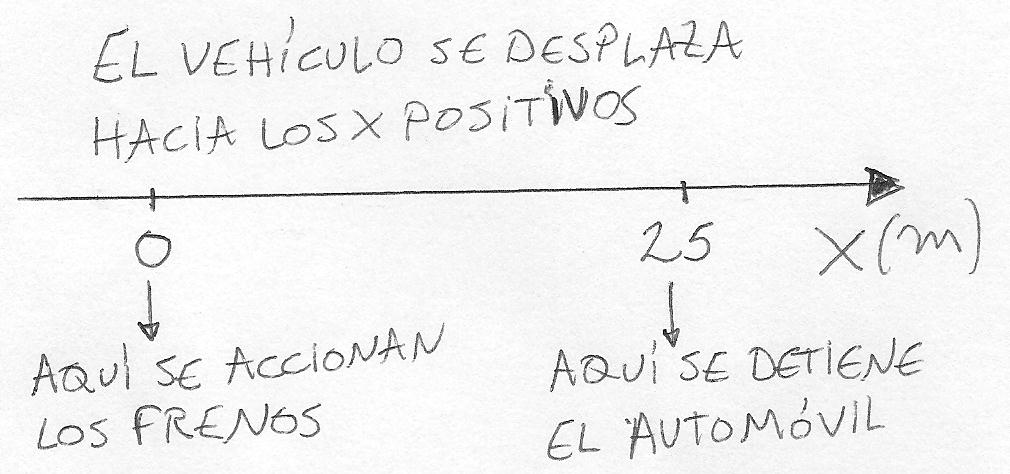 EL VEHÍCULO SE DESPLAZA
HACIA LOS X POSITIVOS
0
25
X (m)
AQUÍ SE ACCIONAN
LOS FRENOS
AQUÍ SE DETIENE
EL AUTOMÓVIL